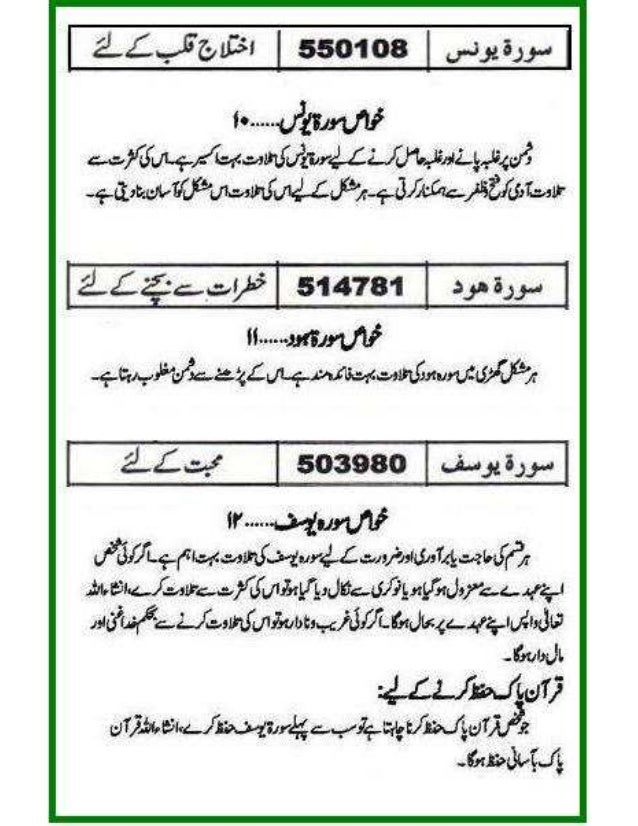 سورة یونس | 550108 | اختلاج قلب کے لئے
خواص سورۃ یونس......۱۰
دشمن پر غلبہ پانے اور غلبہ حاصل کرنے کے لیے سورۃ یونس کی تلاوت بہت اکسیر ہے۔ اس کی کثرت سے
تلاوت آدمی کو فتح و ظفر سے ہمکنار کرتی ہے۔ ہر مشکل کے لیے اس کی تلاوت اس مشکل کو آسان بنا دیتی ہے۔
سورة هود | 514781 | خطرات سے بچنے کے لئے
خواص سورۃ ہود......۱۱
ہر مشکل گھڑی میں سورہ ہود کی تلاوت بہت فائدہ مند ہے۔ اس کے پڑھنے سے دشمن مغلوب رہتا ہے۔
سورة یوسف | 503980 | محبت کے لئے
خواص سورہ یوسف......۱۲
ہر قسم کی حاجت یا برآوری اور ضرورت کے لیے سورہ یوسف کی تلاوت بہت اہم ہے۔ اگر کوئی شخص
اپنے عہدے سے معزول ہو گیا ہو یا نوکری سے نکال دیا گیا ہو تو اس کی کثرت سے تلاوت کرے، انشاء اللہ
تعالیٰ واپس اپنے عہدے پر بحال ہوگا۔ اگر کوئی غریب و نادار ہو تو اس کی تلاوت کرنے سے بحکم خدا غنی اور
مال دار ہوگا۔
قرآن پاک حفظ کرنے کے لیے:
جو شخص قرآن پاک حفظ کرنا چاہتا ہے تو سب سے پہلے سورۃ یوسف حفظ کرے، انشاء اللہ قرآن
پاک بآسانی حفظ ہوگا۔